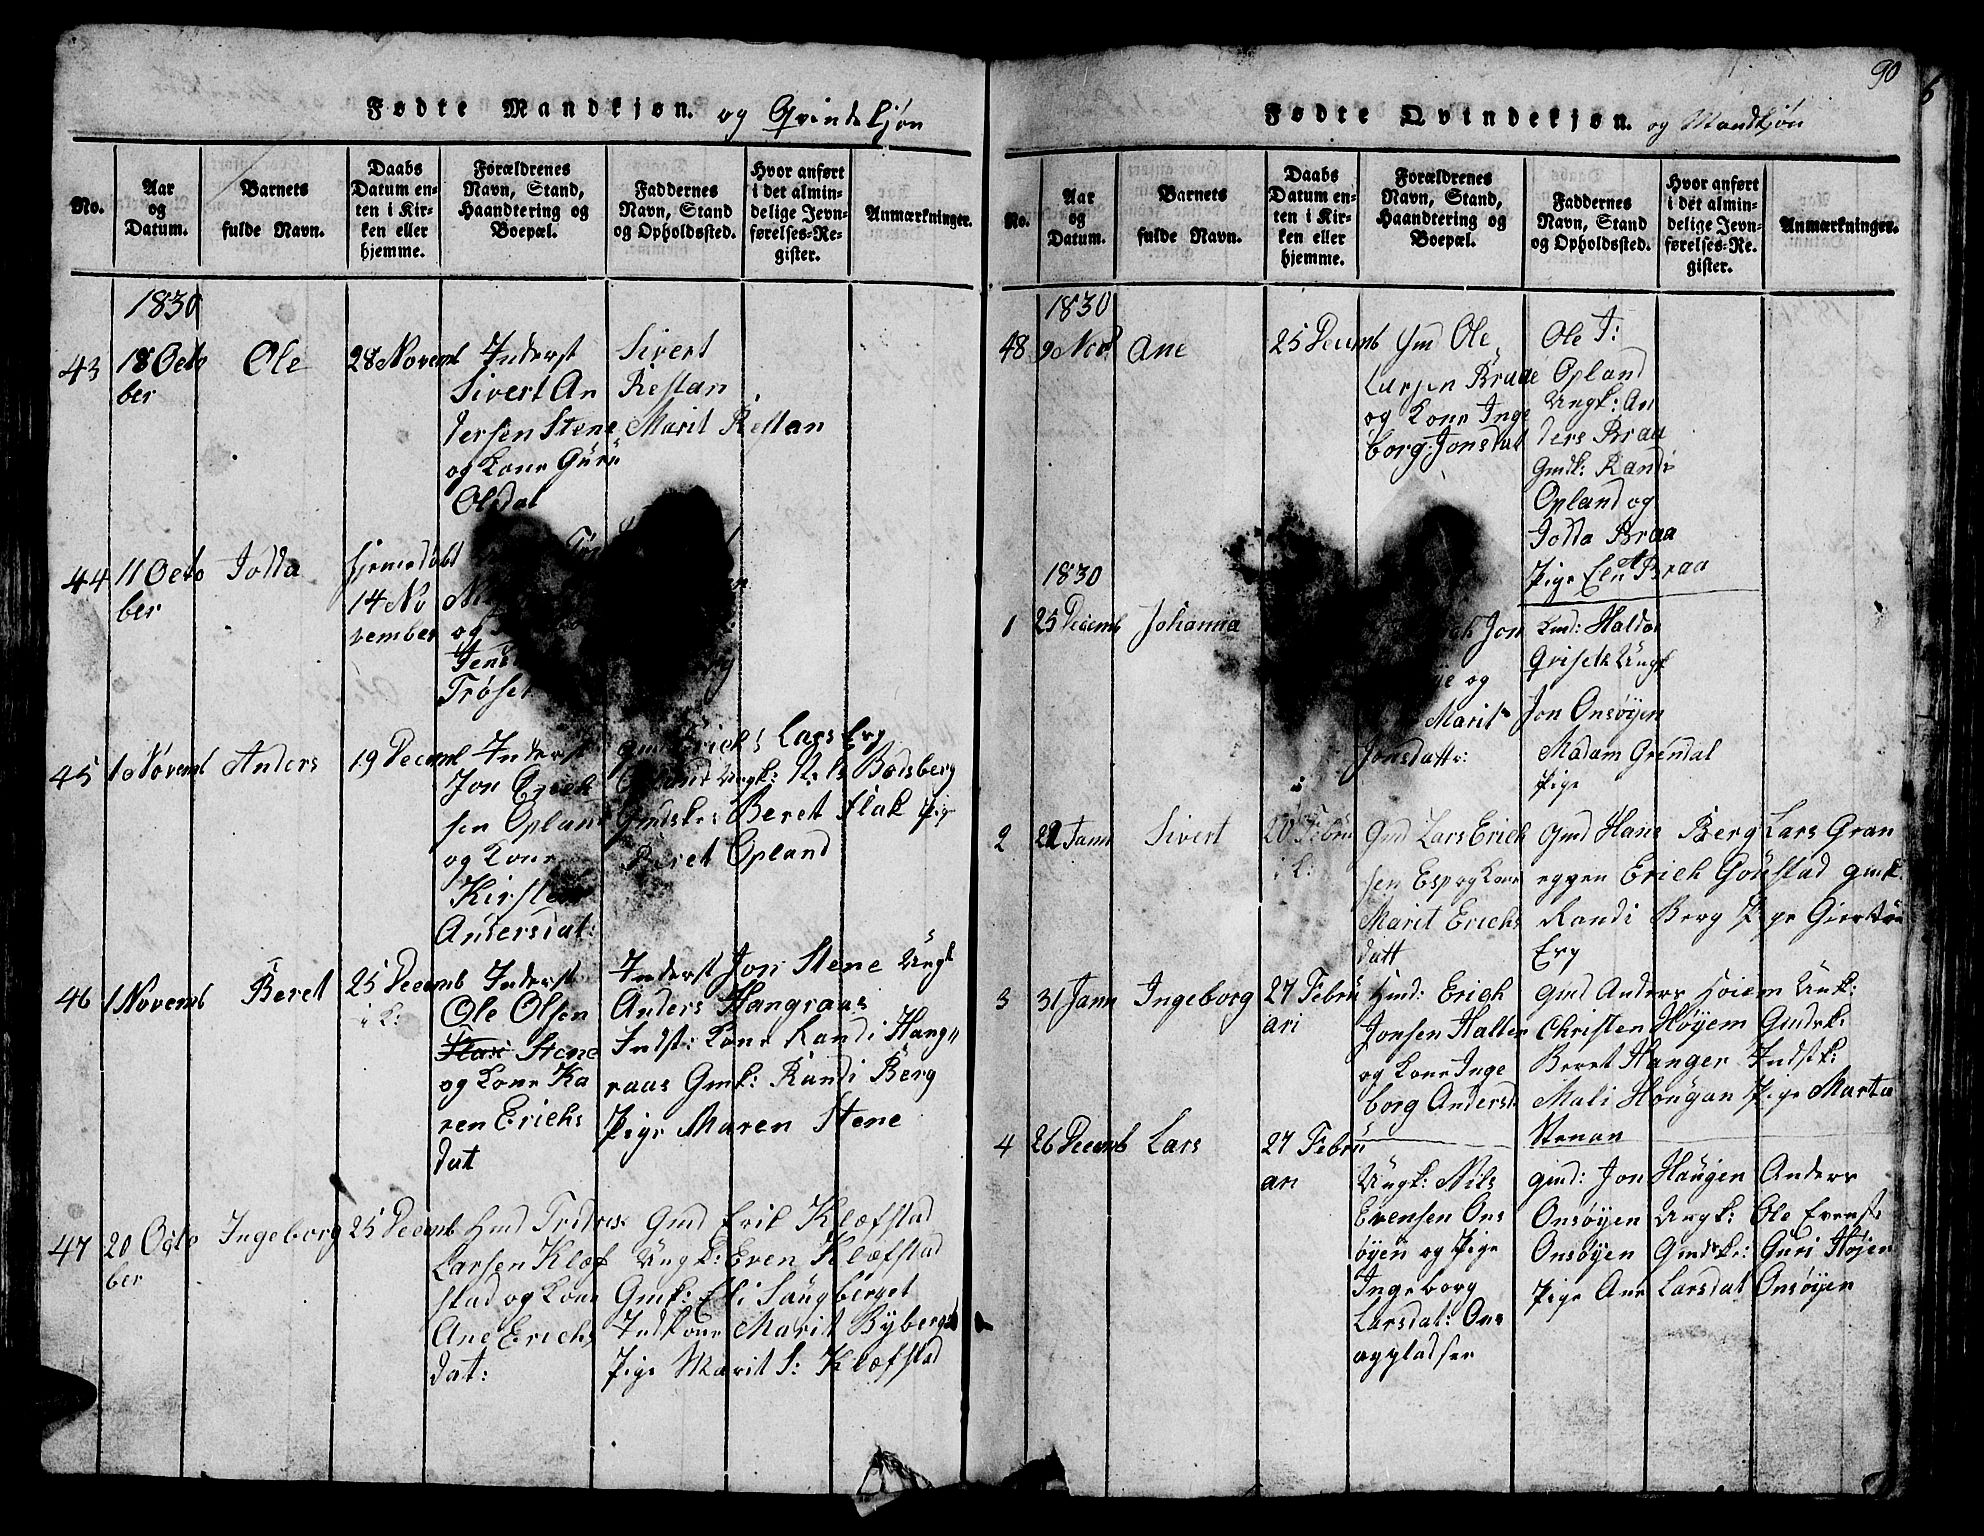 Fødte Mandkjøn. og Qvindekjøn
No.
Aar
og
Datum.
Barnets
fulde Navn.
Daabs
Datum en-
ten i Kir-
ken eller
hjemme.
Forældrenes
Navn, Stand,
Haandtering og
Boepæl.
Faddernes
Navn, Stand
og Opholdssted.
Hvor anført
i det almin-
delige Jevn-
førelses-Re-
gister.
Anmærkninger.
1830
43
18 Octo
ber
Ole
28 Novemb
Inderst
Sivert An
dersen Stene
og Kone Guru
Olsdat
Sivert
Restan
Marit Restan
44
11 Octo
ber
Jodda
hjemedøbt
14 No
vember
og
Jens
Trøse
45
10 Novemb
Anders
19 Decemb
Inderst
Jon Erich
sen Opland
og Kone
Kirsten
Andersdat:
Gmd Erichs Lars Ery
Opland Ungk: Nils Bodsberg
Gmdsk: Beret Flak Pig
Beret Opland
46
1 Novemb
Beret
25 Decemb
i K:
Inderst
Ole Olsen
Stene
og Kone Ka
ren Erichs
dat
Inderst Jon Stene Ungk
Anders Hangraas
Indst: Kone Randi Hang„
raas Gmk: Randi Berg
Pige Maren Stene
47
20 Octo
ber
Ingeborg
25 Decemb
Hmd Fridrik
Larsen Klæf
stad og Kone
Ane Erichs
dat:
Gmd Erik Klæfstad
Ungk: Even Klæfstad
Gmk: Eli Saugberget
Indkone Marit Byberg
Pige Marit S: Klæfstad
90
6
Fødte Qvindekjøn. og Mandkjøn
No.
Aar
og
Datum.
Barnets
fulde Navn.
Daabs
Datum en-
ten i Kir-
ken eller
hjemme.
Forældrenes
Navn, Stand,
Haandtering og
Boepæl.
Faddernes
Navn, Stand
og Opholdssted.
Hvor anført
i det almin-
delige Jevn-
førelses-Re-
gister.
Anmærkninger.
1830
48
9 Nov
Ane
25 Decemb
Gm Ole
Larsen Braae
og Kone Inge
borg Jonsdat
Ole J:
Opland
Ungk: An
ders Braa
Gmdk: Randi
Opland og
Jodda Braa
Pige Eln Braa
1830
1
25 Decemb
Johanna
Jon
og
Marit
Jonsdattr:
Kmd: Haldor
Griseth Ungk
Jon Onsøyen
Madam Grendal
Pige
2
22 Janu
Sivert
20 Febru
i K:
Gmd Lars Erich
sen Esp og Kone
Marit Erichs
datt
Gmd Hans Berg Lars Gran
eggen Erich Gønstad gmk:
Randi Berg Pige Giertru
Ery
3
31 Janu
Ingeborg
27 Febru
ari
Hmd: Erich
Jonsen Halten
og Kone Inge
borg Andersd
Gmd Anders Hoiem Unk:
Christen Høyem Gmdsk:
Beret Hanger Indstk:
Mali Hougan Pige Marta
Stenan
4
26 Decemb
Lars
27 Febru
ari
Ungk: Nils
Evensen Ons
øyen og Pige
Ingeborg
Larsdat: Ons
øypladser
Gmd: Jon Haugen Anders
Onsøyen Ungk: Ole Evens:
Onsøyen Gmdsk: Guri Højen
Pige Ane Larsdat Onsøyen